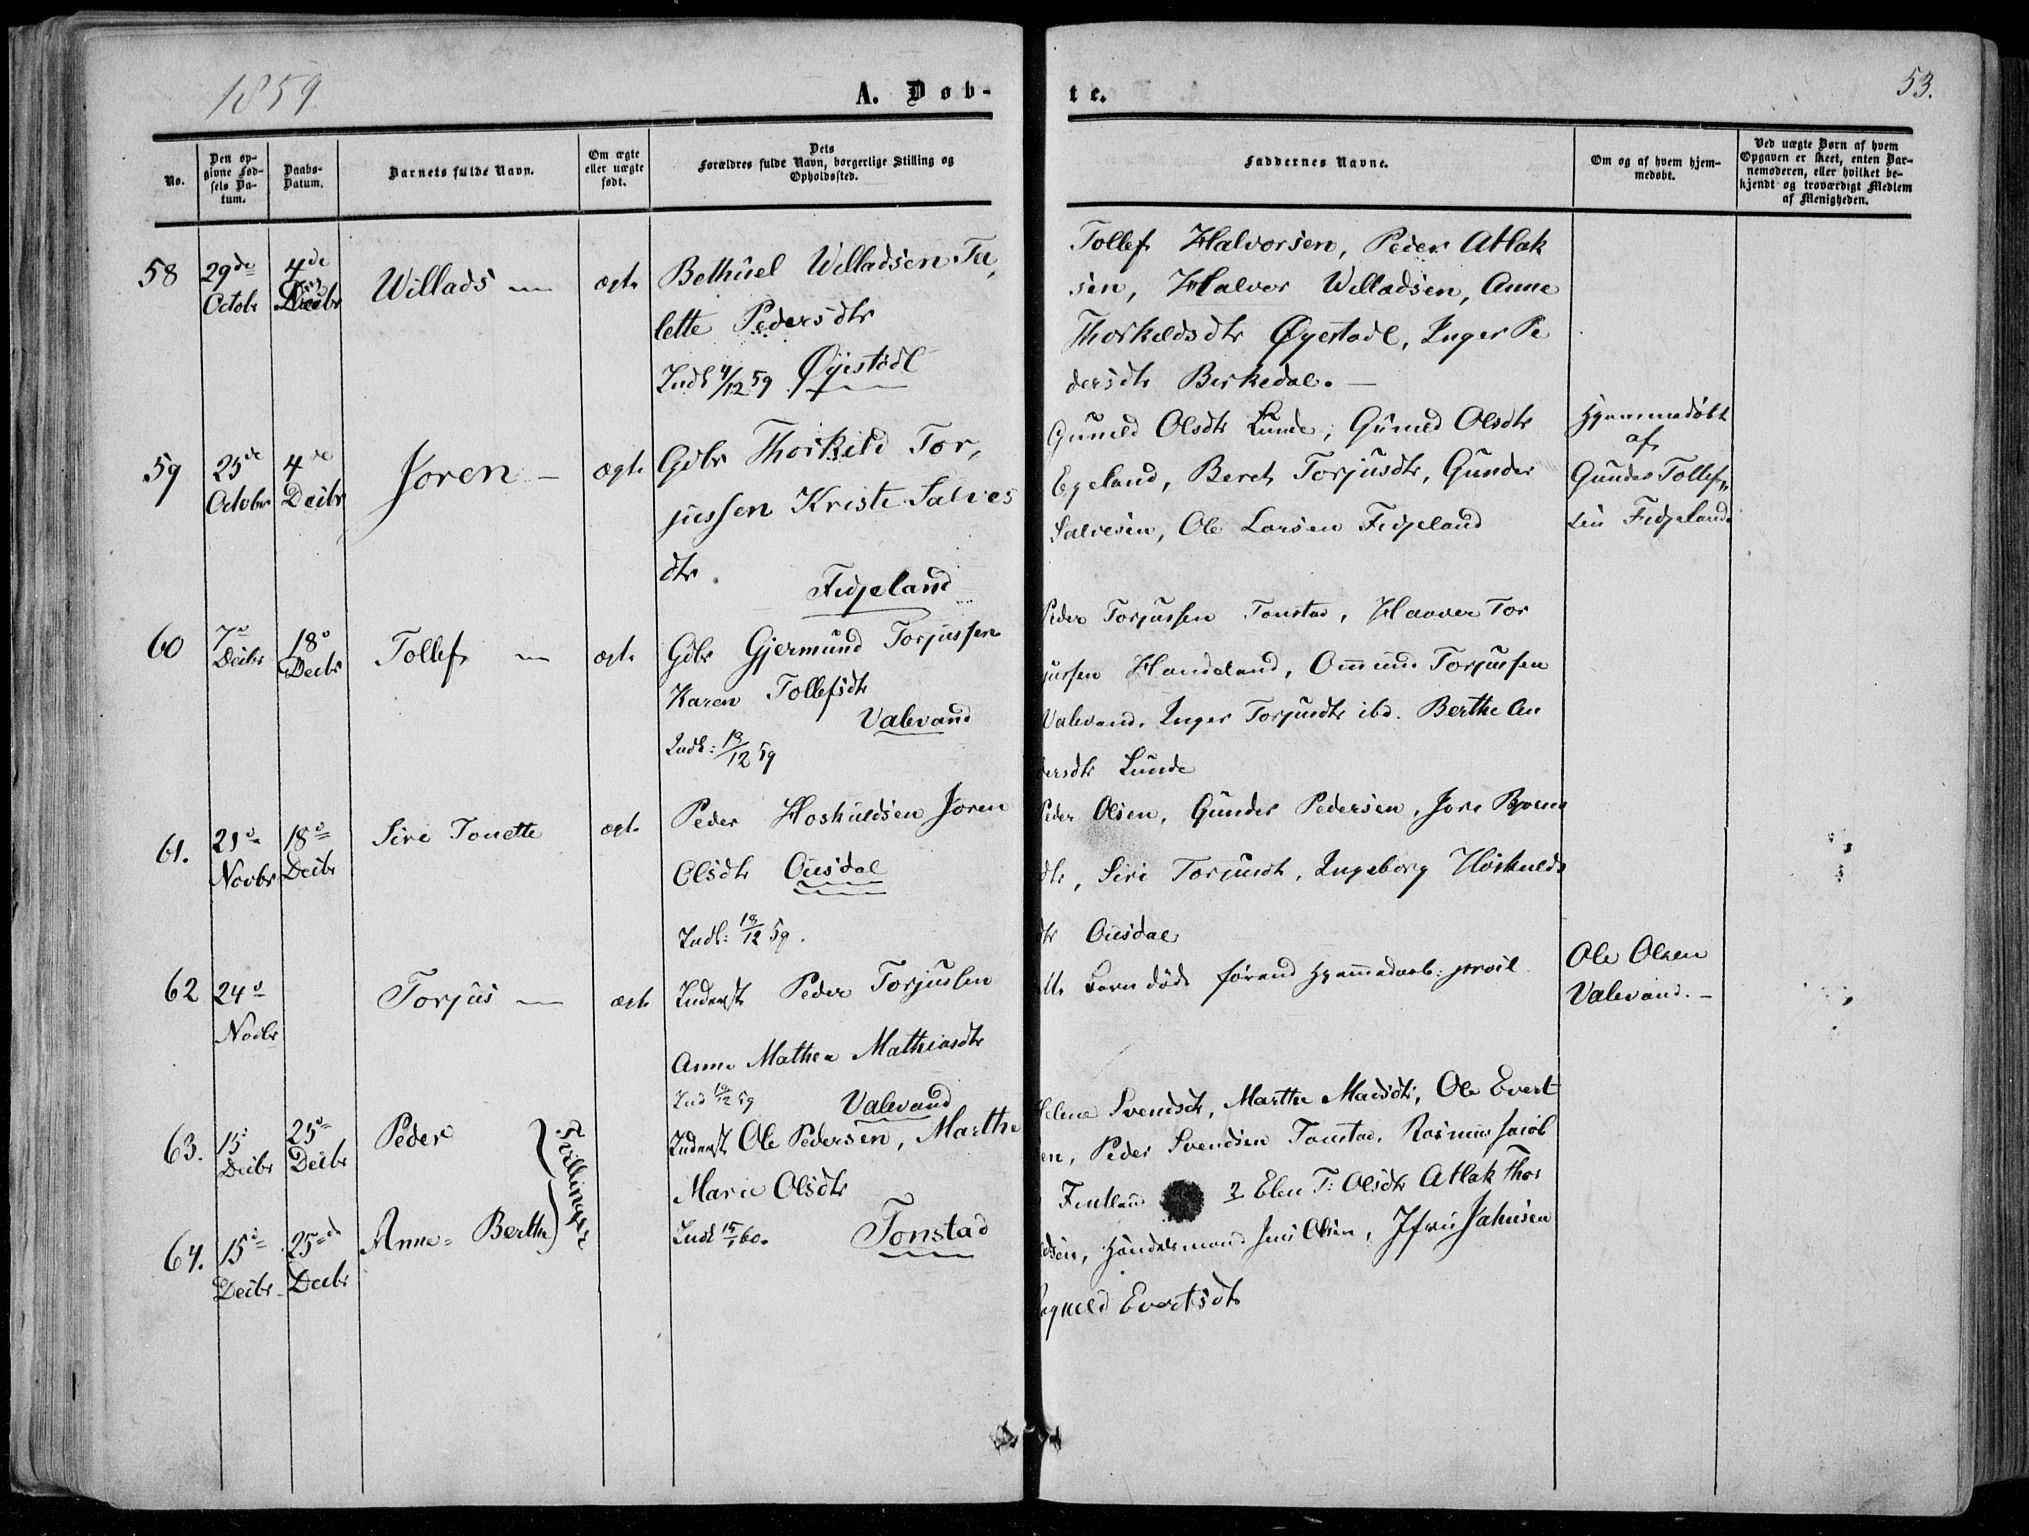 1859
A. Døb-
te.
53.
No.
Den op-
givne Fød-
sels Da-
tum.
Daabs-
Datum.
Barnets fulde Navn.
Om ægte
eller uægte
født.
Dets
Forældres fulde Navn, borgerlige Stilling og
Opholdssted.
Faddernes Navne.
Om og af hvem hjem-
medøbt.
Ved uægte Børn af hvem
Opgaven er skeet, enten Bar-
nemoderen, eller hvilket be-
kjendt og troværdigt Medlem
af Menigheden.
58
29de
Octobr
4de
Decbr
Willads
ægte
Bethüel Willadsen
lette Pedersdtr
Indl 4/12 59 Øyestøl
Tollef Halvorsen, Peder Atlak
sen, Halvor Willadsen, Anne
Thorkeldsdtr Øyestadl, Inger Pe
dersdtr Birkedal.
59
25de
Octobr
4de
Decbr
Joren
ægte
Gdbr Thorkild Tor,
jussen Kriste Salves
dtr
Fidjeland
Guneld Olsdtr Lunde, Güneld Olsdtr
Egeland, Beret Torjusdtr, Gunder
Salvesen, Ole Larsen Fidjeland
Hjemmedøbt
af
Gunder Tollef,,
sen Fidjeland.
60
7de
Decbr
18de
Decbr
Tollef
ægte
Gdbr Gjermünd Torjussen
Karen Tollefsdtr
Valevand
Indl: 18/12 59
Peder Torjussen Tonstad, Haaver Tor
jussen Handeland, Ommund Torjussen
Valevand, Inger Torjusdtr ibd. Berthe An
dersdtr Lunde
61.
21de
Novbr
18de
Decbr
Siri Tonette
ægte
Peder Hoskuldsen Joren
Olsdtr Ousdal
Indl: 18/12 59.
Peder Olsen, Gunder Pedersen, Jore Bjorns
dtr, Siri Torjusdtr, Ingeborg Høskulds
dtr Ousdal
62
24de
Novbr
Torjus
ægte
Inderst Peder Torjussen
Anne Mathea Mathiasdtr
Ind 18/12 59 Valevand
Barn døde førend Hjemmedaab:
Ole Olsen
Valevand.
63.
15de
Decbr
25de
Decbr
Peder
Tvillinger
Inderst Ole Pedersen, Marthe
Marie Olsdtr
Indl 15/1 60. Tonstad
Helene Svendsdtr, Marthe Madsdtr, Ole Evert
sen, Peder Svendsen Tonstad, Rasmus Jacob
Fintland 2 Elen T: Olsdtr Atlak Thor
64.
15de
Decbr
25de
Decbr
Anne Berthe
Handelsmand Jens Olsen, Jfru Jahnsen
Evertsdtr